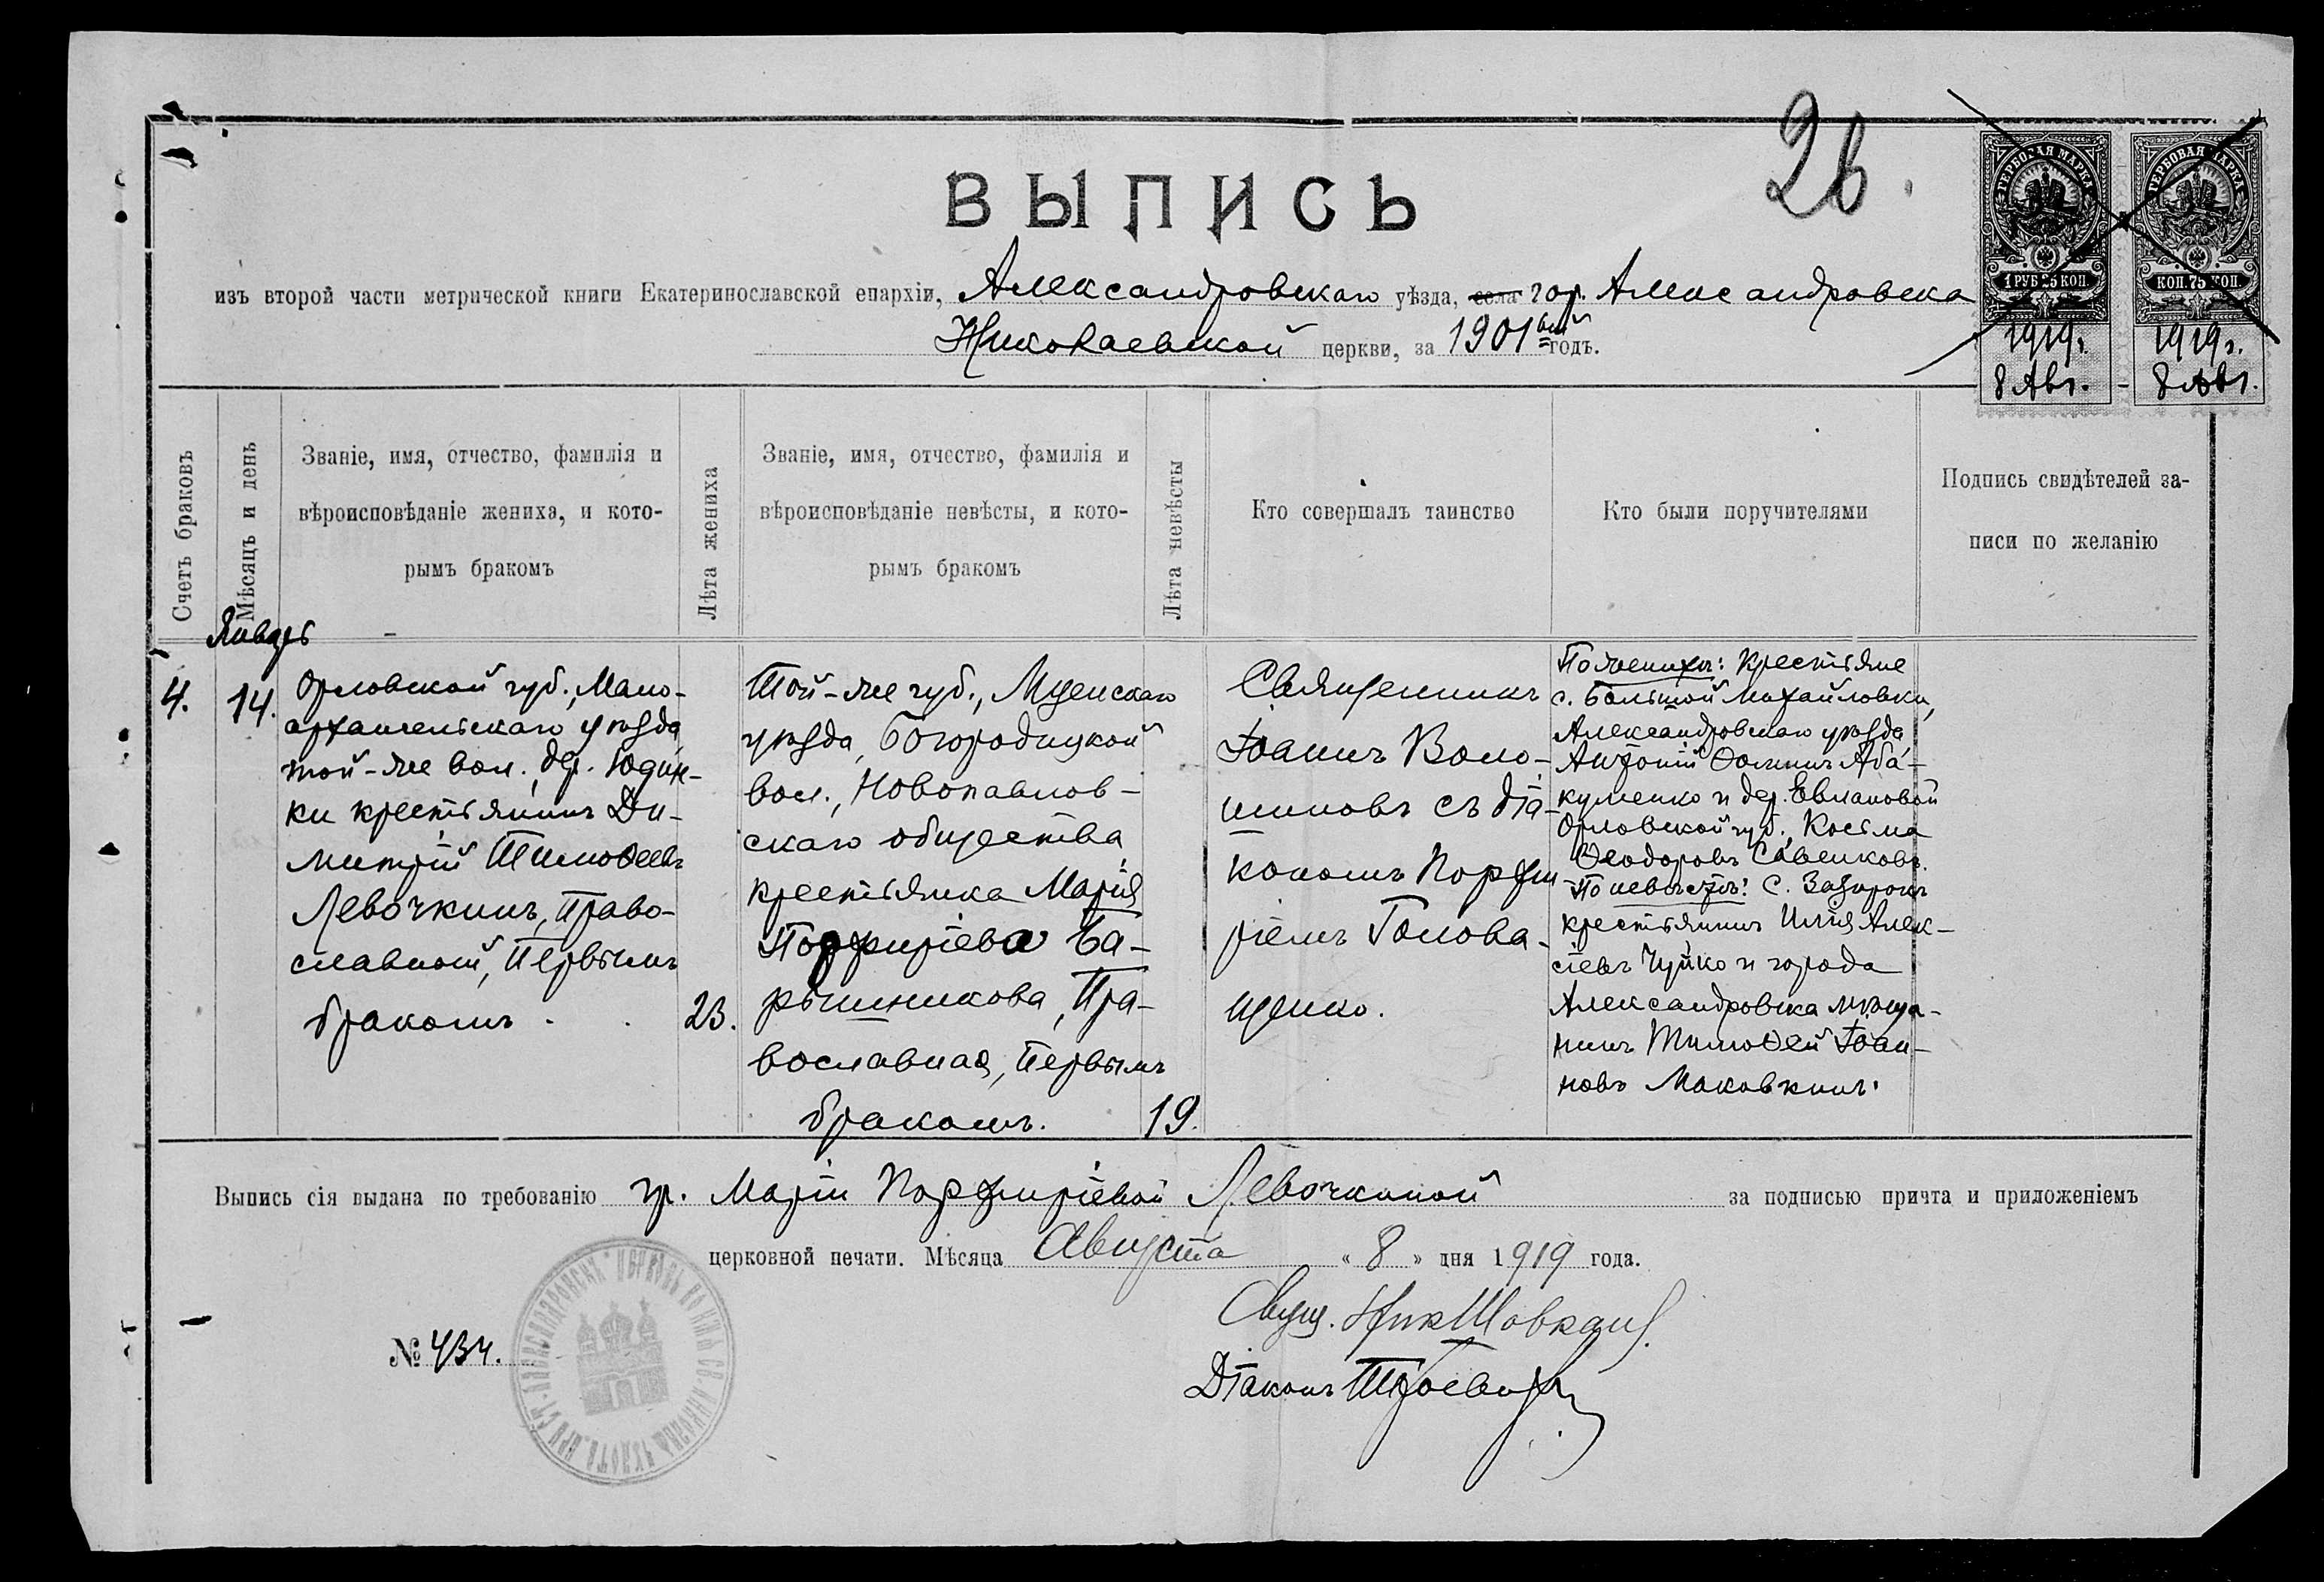 2в.
ГЕРБОВАЯ МАРКА
1 РУБ 25 КОП.
1919 г.
8 Авг.
ГЕРБОВАЯ МАРКА
КОП. 75 КОП.
1919 г.
8 Авг.
ВЫПИСЬ
изъ второй части метрической книги Екатеринославской епархіи, Александровскаго уѣзда, села гор. Александровска
Николаевской церкви, за 1901 вый годъ.
Счетъ браковъ
Мѣсяцъ и день
Званіе, имя, отчество, фамилія и
вѣроисповѣданіе жениха, и кото-
рымъ бракомъ
Лѣта жениха
Званіе, имя, отчество, фамилія и
вѣроисповѣданіе невѣсты, и кото-
рымъ бракомъ
Лѣта невѣсты
Кто совершалъ таинство
Кто были поручителями
Подпись свидѣтелей за-
писи по желанію
Январь
4.
14.
Орловской губ., Мало-
архангельскаго уѣзда
той-же вол., дер. Юдин-
ки крестьянинъ Ди-
митрій Тимоѳеевъ
Левочкинъ, Право-
славный, Первымъ
бракомъ.
23.
Той-же губ., Мценскаго
уѣзда, Богородицкой
вол., Новопавлов-
скаго общества
крестьянка Марія
Порфиріева Ба-
рышникова, Пра-
вославная, Первымъ
бракомъ.
19.
Священникъ
Іоаннъ Воло-
шиновъ съ діа-
кономъ Порфи-
ріемъ Голова-
щенко.
По женихѣ: Крестьяне
с. Большой Михайловки,
Александровскаго уѣзда
Антоній Ѳоминъ Аба-
куменко и дер. Евлановой
Орловской губ., Косьма
Ѳеодоровъ Савенковъ.
По невѣстѣ: С.
крестьянинъ Илія Алек-
сіевъ Чуйко и города
Александровска мѣща-
нинъ Тимоѳей Іоан-
новъ Маковкинъ.
Выпись сія выдана по требованію гр. Маріи Порфиріевой Левочкиной за подписью причта и приложеніемъ
церковной печати. Мѣсяца Августа « 8 » дня 1919 года.
Свящ. Ник Шовкан
Діаконъ
№ 434.
ЦЕРКОВЬ ВО ИМЯ СВ. НИКОЛАЯ ЧУДОТВ. ПРИ СТ. АЛЕКСАНДРОВСКЪ